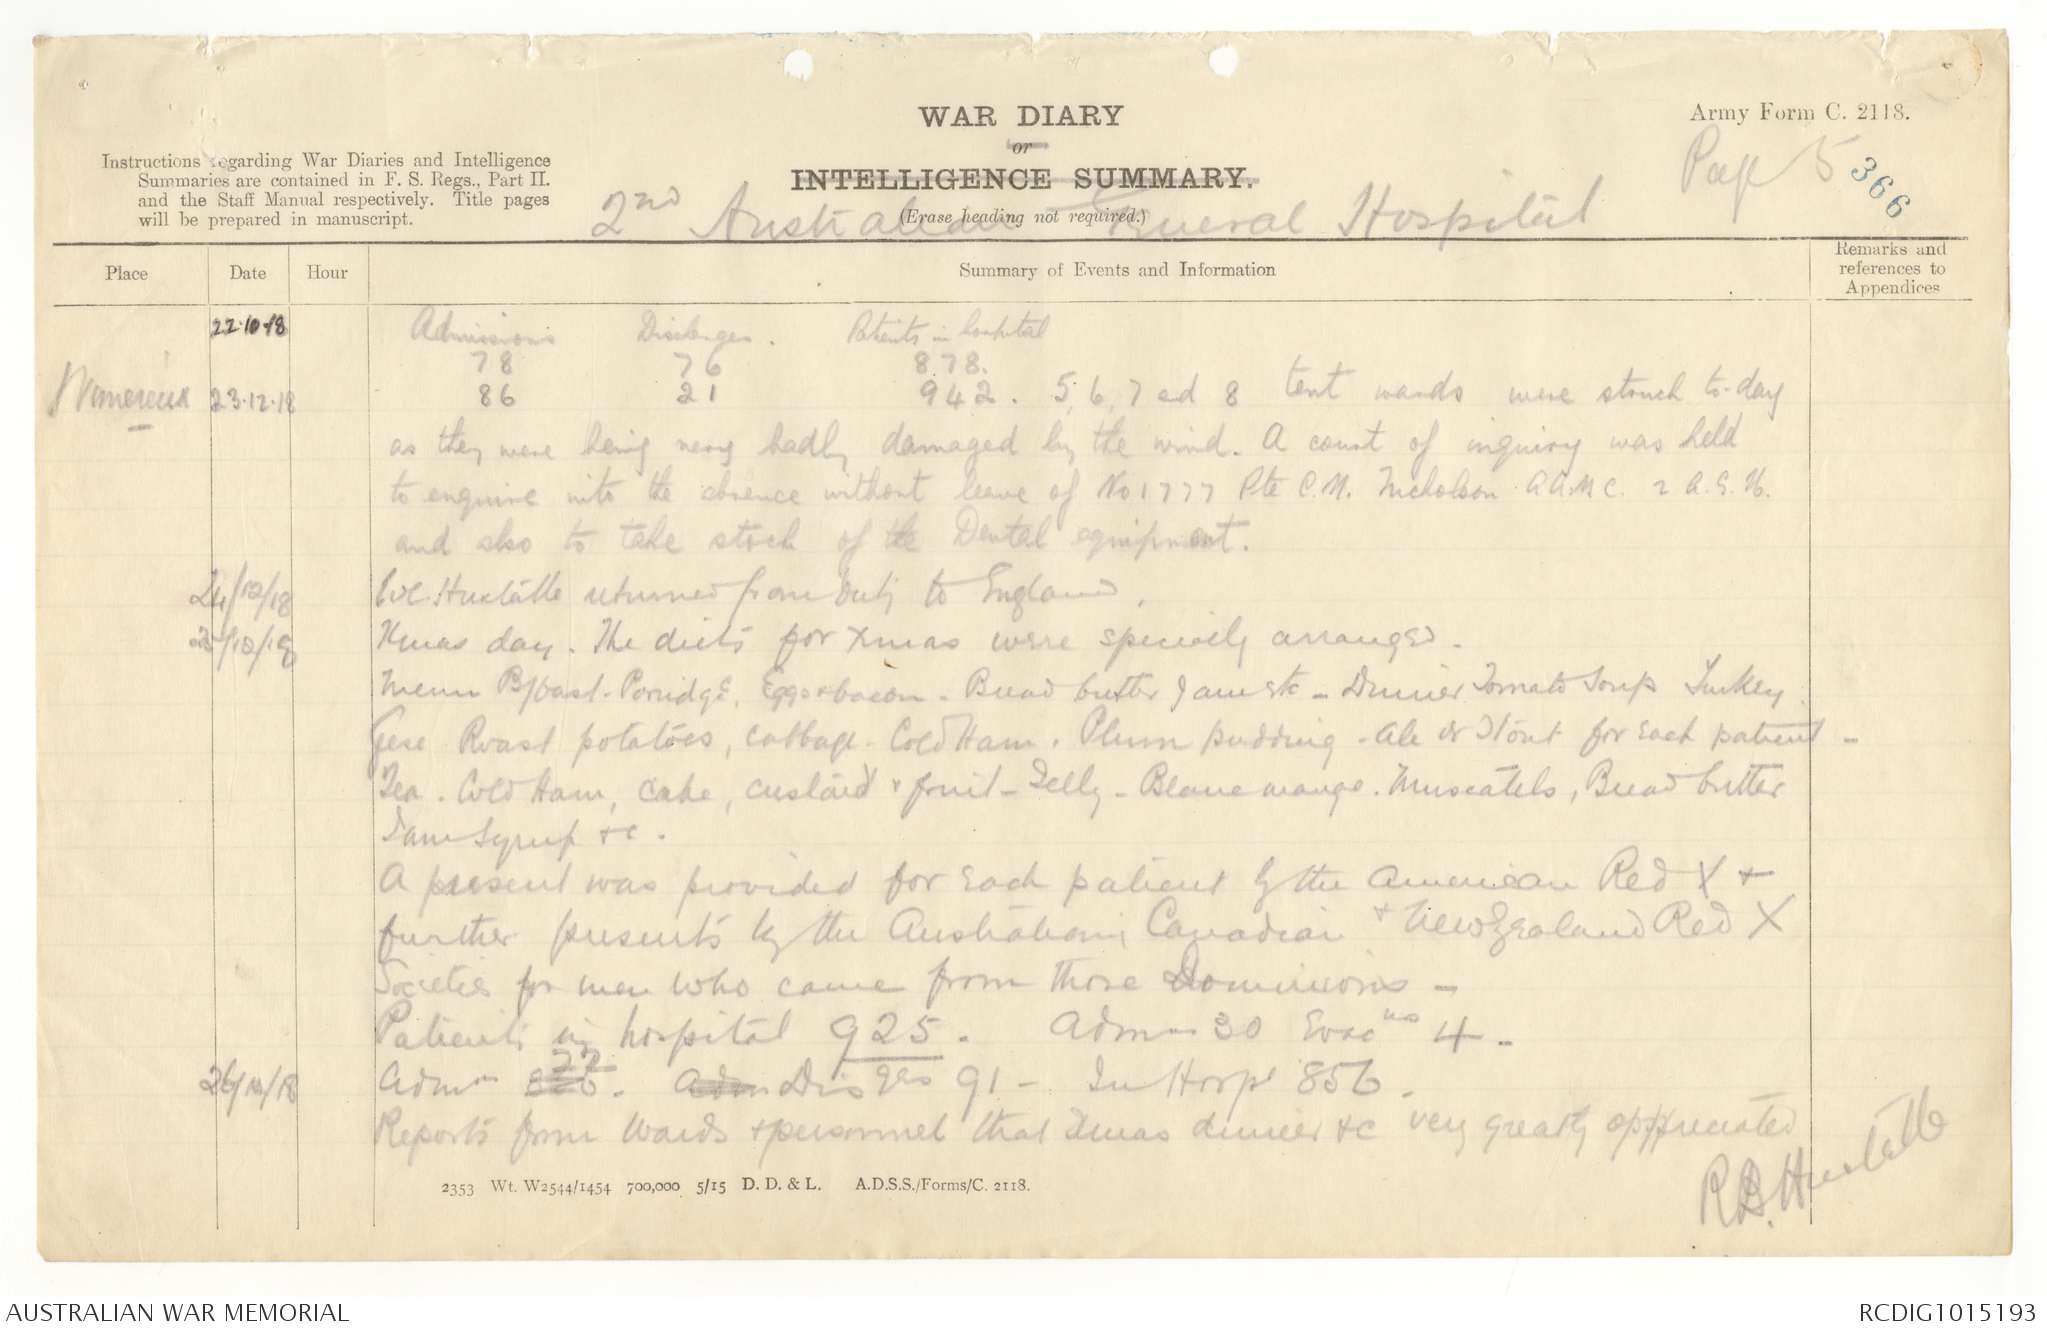 WAR DIARY
or
INTELLIGENCE SUMMARY.
(Erase heading not required.)
Army Form C. 2118.
Page 5
366
Instructions regarding War Diaries and Intelligence
Summaries are contained in F. S. Regs., Part II.
and the Staff Manual respectively. Title pages
will be prepared in manuscript.
2nd Australian General Hospital
Place Date Hour Summary of Events and Information Remarks and
references to
Appendices
22.10.18 Admissions Discharges. Patients in hospital
78 76 878.
Wimereux 23.12.18 86 21 942. 5, 6, 7 and 8 tent wards were struck to-day
as they were being very badly damaged by the wind. A court of inquiry was held
to enquire into the absence without leave of No 1777 Pte C.N. Nicholson A.A.M.C. 2 A.G.H.
and also to take stock of the Dental equipment.
24/12/18 Col Huxtable returned from duty to England.
25/12/18 Xmas day. The diets for Xmas were specially arranged.
Menu B/fast - Porridge, Eggs & bacon - Bread butter Jam etc - Dinner Tomato Soup Turkey
Geese Roast potatoes, cabbage - Cold Ham. Plum pudding - Ale or Stout for each patient -
Tea. Cold Ham, cake, custard & fruit - Jelly - Blancmange. Muscatels, Bread butter
Jam Syrup &c.
A present was provided for each patient by the American Red X &
further presents by the Australian, Canadian & New Zealand Red X
Societies for men who came from those Dominions -
Patients in hospital 925. Admns 30 Evacns 4 -
26/12/18 Admn 22. Adm Disges 91 - In Hospl 856.
Reports from Wards & personnel that Xmas dinner &c very greatly appreciated
R.B. Huxtable
2353 Wt. W2544/1454 700,000 5/15 D. D. & L. A.D.S.S./Forms/C. 2118.
AUSTRALIAN WAR MEMORIAL RCDIG1015193